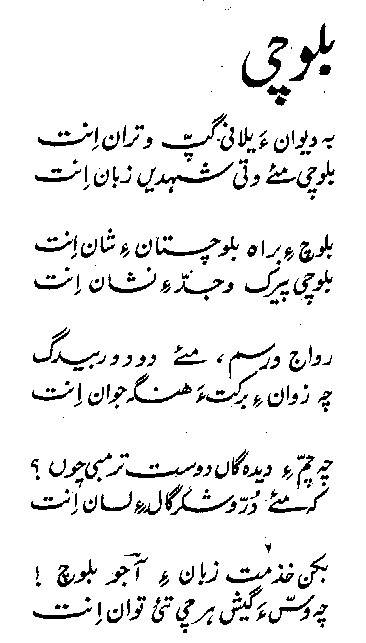 بلوچی
بہ دیوان ءَ یلانی گپّ و تران اِنت
بلوچی مئے وتی شہدیں زبان اِنت
بلوچ ءِ براہ بلوچستان ءِ شان اِنت
بلوچی پیرک و جدّ ءِ نشان اِنت
رواج و رسم، مئے دود و ربیدگ
چہ زوان ءِ برکت ءَ ہنگہ جوان اِنت
چہ چمّ ءِ دیدہ گاں دوست ترمبی چوں ؟
کہ مئے دُرّ و شکر گال ءِ لسان اِنت
بکن خذمت زبان ءِ آجو بلوچ !
چہ وسّ ءَ گیش ہرچی تئی توان اِنت